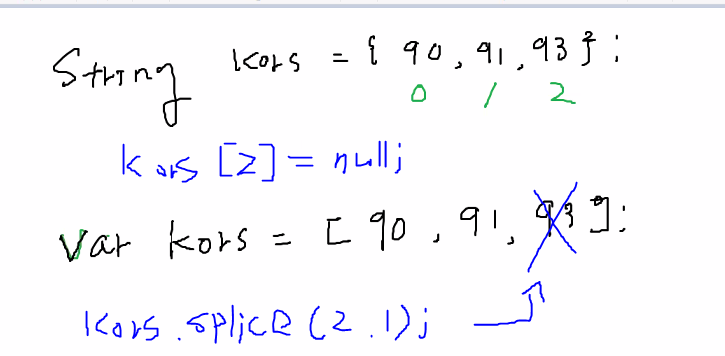 String kors = { 90, 91, 93 };
0 1 2
kors [2] = null;
Var kors = [ 90, 91, 93 ];
kors.splice (2.1);